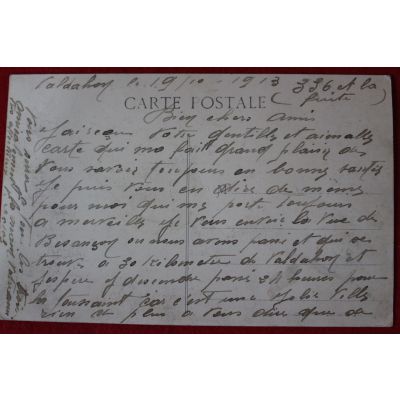 Valdahon le 19/10 - 1913 336 et la
CARTE POSTALE ( suite
Bien chers Amis
J'ai reçu Votre gentille et aimable
Carte qui ma fait grand plaisir de
Vous savoir toujours en bonne santée
Je puis Vous en dire de meme
pour moi qui me porte toujours
a merveille je Vous envoie la Vue de
Besançon ou nous avons passé et qui se
trouve a 30 Kilometre de Valdahon et
j'espere y descendre passé 24 heures pour
la toussaint car c'est une Jolie Ville
rien de plus a Vous dire que de